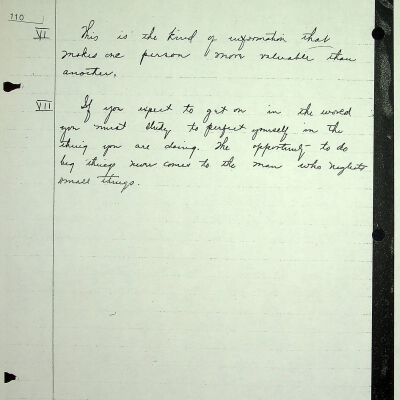 110
VI This is the kind of information that
makes one person more valuable than
another.
VII If you expect to get on in the world
you must study to perfect yourself in the
thing you are doing. The opportunity to do
big things never comes to the man who neglects
small things.